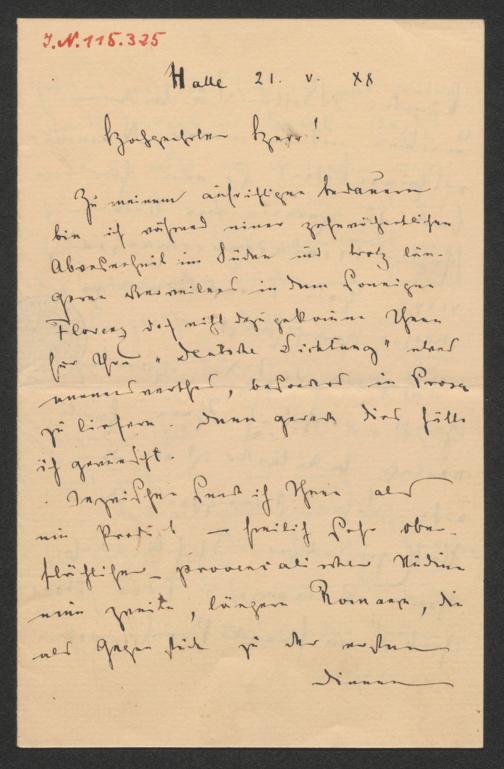 I.N. 115.325
Halle 21. V. XX
Hochgeehrter Herr!
Zu meinem aufrichtigen Bedauern
bin ich während einer zehnwöchentlichen
Abwesenheit im Süden und trotz län-
geren Verweilens in dem sonnigen
Florenz doch nicht dazu gekommen Ihnen
für Ihre "Deutsche Dichtung" etwas
nennenswerthes, besonders in Prosa
zu liefern. Denn gerade dies hätte
ich gewünscht.
Inzwischen sende ich Ihnen als
ein Produkt — freilich sehr ober-
flächlicher — provencalischer Studien
eine zweite, längere Romanze, die
als Gegenstück zu der ersten
dienen